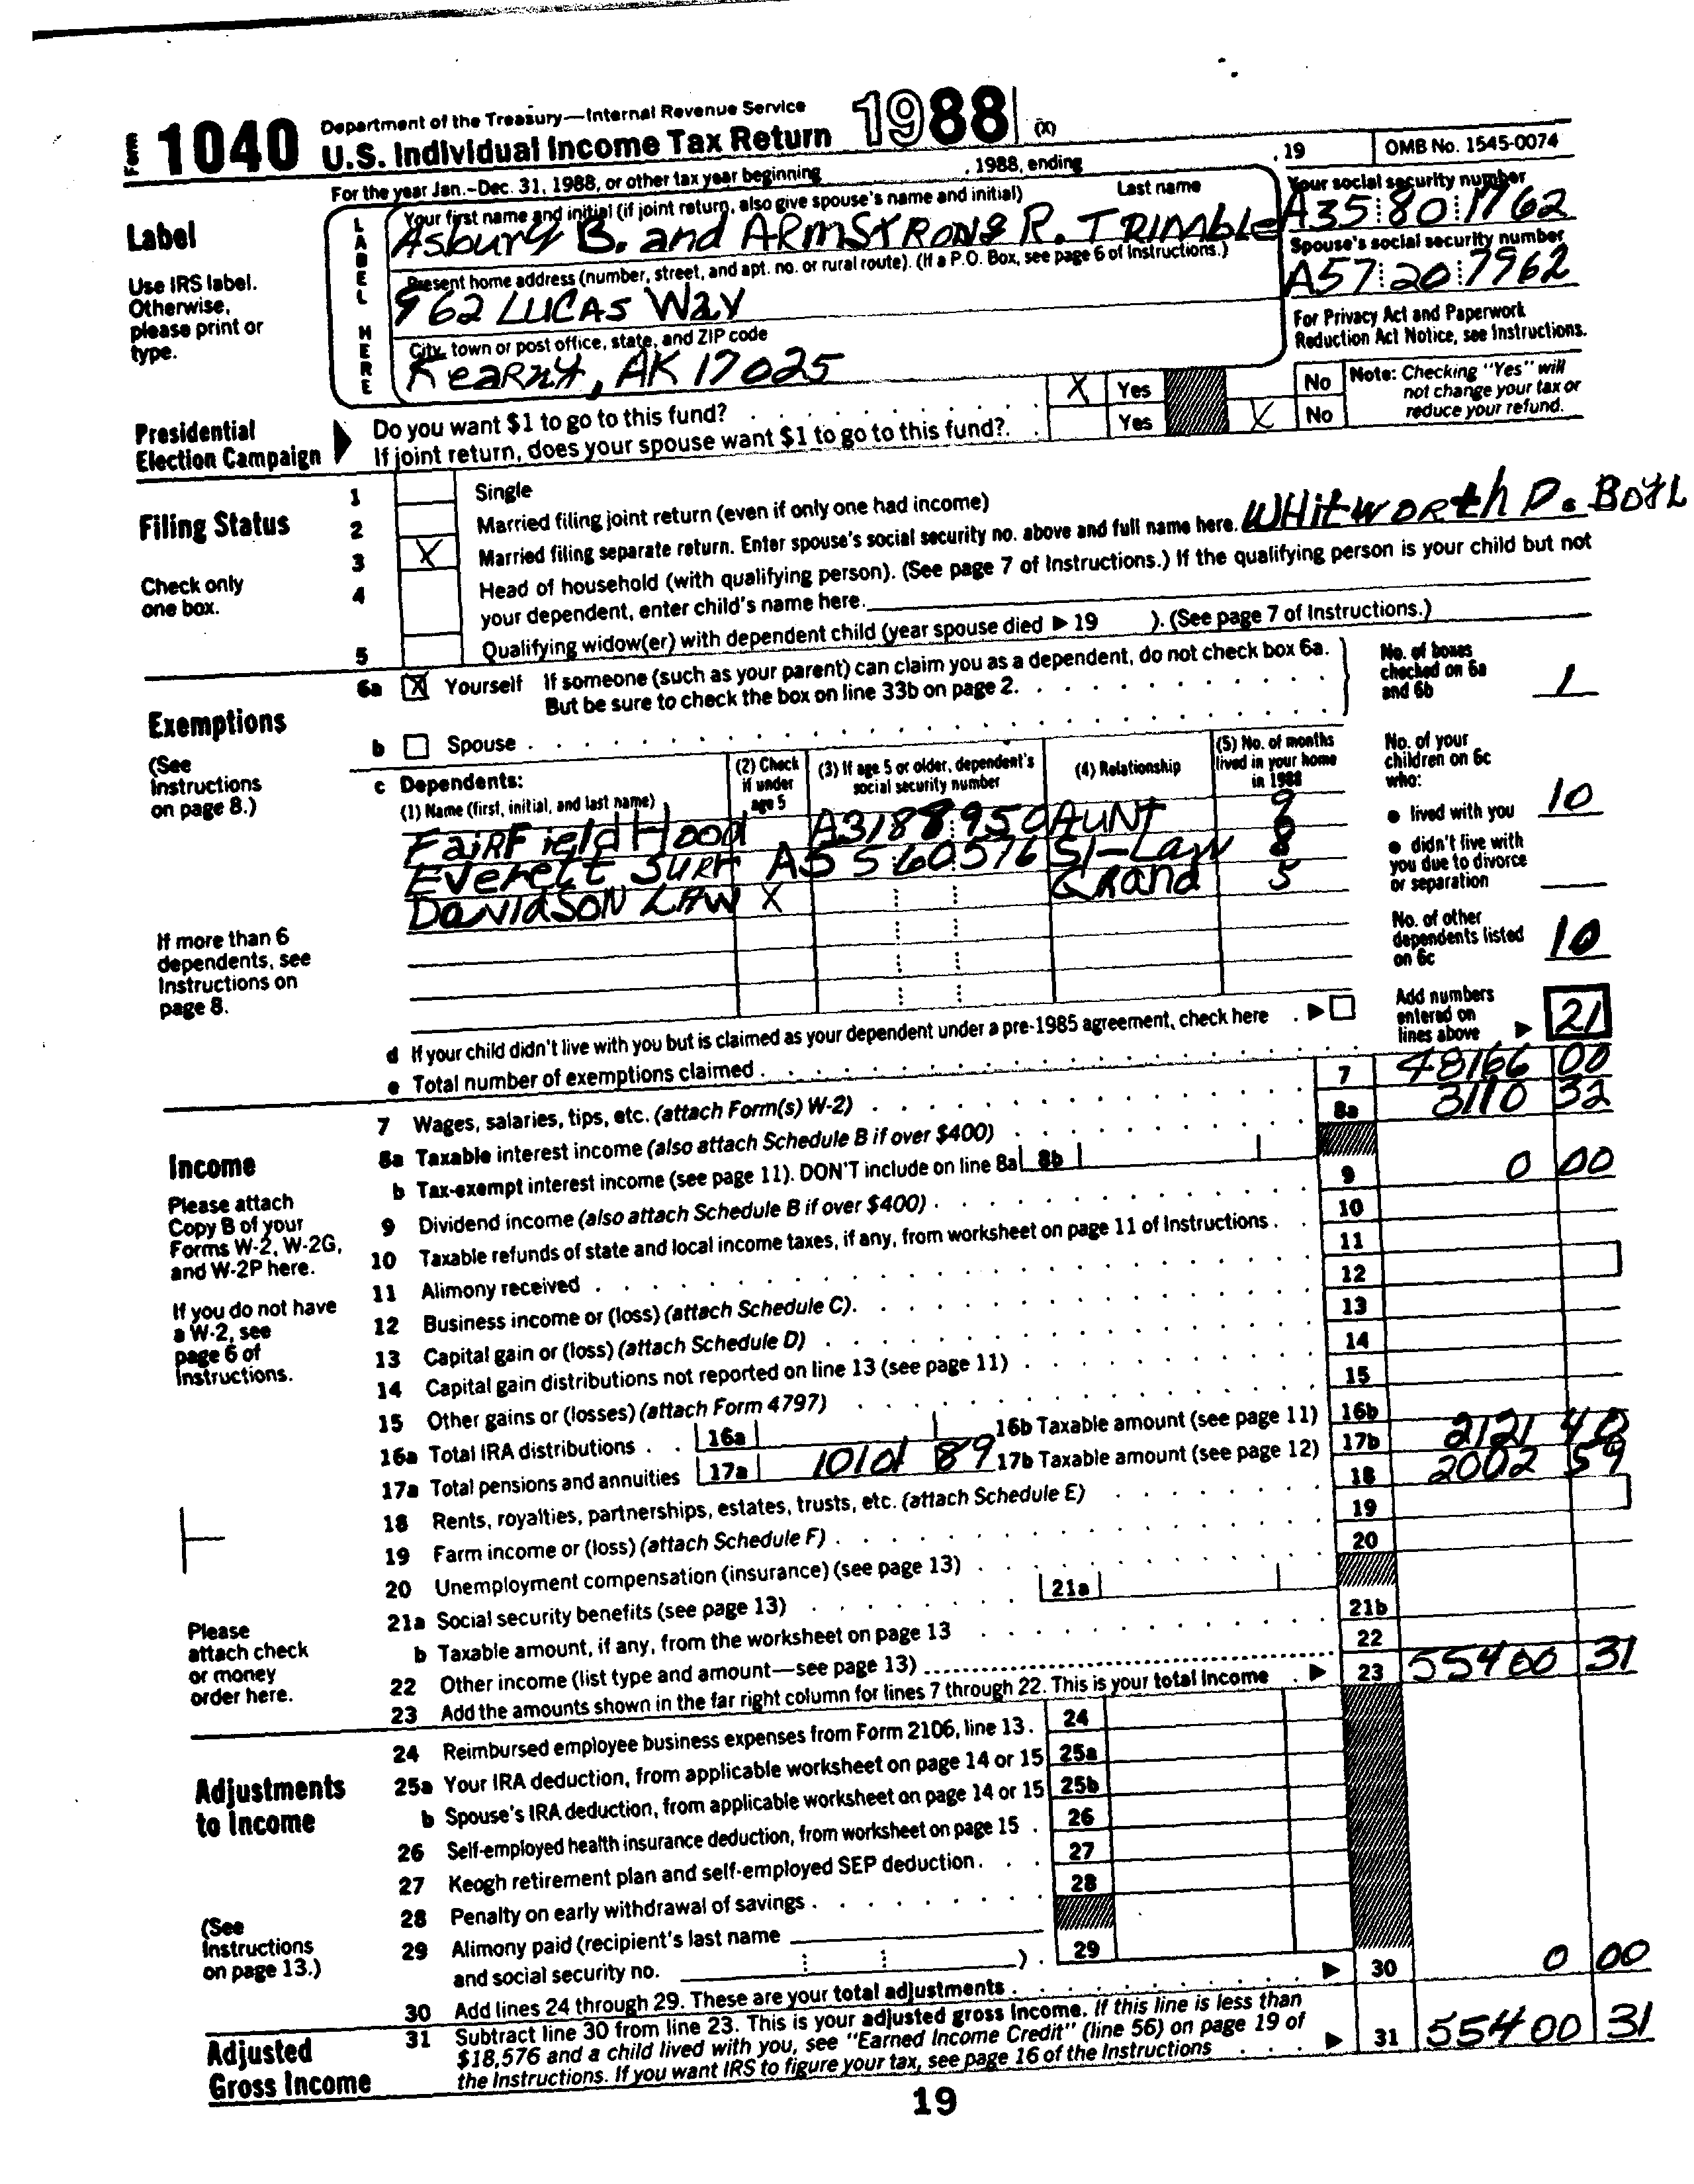 Form 1040 Department of the Treasury—Internal Revenue Service
U.S. Individual Income Tax Return 1988 (X)
For the year Jan.-Dec. 31, 1988, or other tax year beginning , 1988, ending , 19 OMB No. 1545-0074
Label
Use IRS label. Otherwise, please print or type.
LABEL HERE
Your first name and initial (if joint return, also give spouse's name and initial) Last name
Asbury B. and ARMSTRONG R. TRIMBLE
Your social security number
A35 80 1762
Present home address (number, street, and apt. no. or rural route). (If a P.O. Box, see page 6 of Instructions.)
962 LUCAS WAY
Spouse's social security number
A57 20 7962
City, town or post office, state, and ZIP code
Kearny, AK 17025
For Privacy Act and Paperwork Reduction Act Notice, see Instructions.
Presidential Election Campaign
Do you want $1 to go to this fund? X Yes No
If joint return, does your spouse want $1 to go to this fund? Yes X No
Note: Checking "Yes" will not change your tax or reduce your refund.
Filing Status
Check only one box.
1 Single
2 Married filing joint return (even if only one had income)
3 X Married filing separate return. Enter spouse's social security no. above and full name here. WHitwORth D.
4 Head of household (with qualifying person). (See page 7 of Instructions.) If the qualifying person is your child but not
your dependent, enter child's name here.
5 Qualifying widow(er) with dependent child (year spouse died ▶ 19 ). (See page 7 of Instructions.)
Exemptions
(See Instructions on page 8.)
6a X Yourself If someone (such as your parent) can claim you as a dependent, do not check box 6a.
But be sure to check the box on line 33b on page 2.
b Spouse
No. of boxes checked on 6a and 6b 1
c Dependents:
(1) Name (first, initial, and last name) (2) Check if under age 5 (3) If age 5 or older, dependent's social security number (4) Relationship (5) No. of months lived in your home in 1988
FairField Hood A31 88 950 AUNT 9
Everett A5 5 60 576 SI-Law 8
DavidSON LAW X Grand 5
No. of your children on 6c who:
● lived with you 10
● didn't live with you due to divorce or separation
No. of other dependents listed on 6c 10
If more than 6 dependents, see Instructions on page 8.
d If your child didn't live with you but is claimed as your dependent under a pre-1985 agreement, check here ▶
e Total number of exemptions claimed
Add numbers entered on lines above ▶ 21
Income
Please attach Copy B of your Forms W-2, W-2G, and W-2P here.
If you do not have a W-2, see page 6 of Instructions.
Please attach check or money order here.
7 Wages, salaries, tips, etc. (attach Form(s) W-2) 7 48166 00
8a Taxable interest income (also attach Schedule B if over $400) 8a 3110 32
b Tax-exempt interest income (see page 11). DON'T include on line 8a 8b
9 Dividend income (also attach Schedule B if over $400) 9 0 00
10 Taxable refunds of state and local income taxes, if any, from worksheet on page 11 of Instructions 10
11 Alimony received 11
12 Business income or (loss) (attach Schedule C) 12
13 Capital gain or (loss) (attach Schedule D) 13
14 Capital gain distributions not reported on line 13 (see page 11) 14
15 Other gains or (losses) (attach Form 4797) 15
16a Total IRA distributions 16a 16b Taxable amount (see page 11) 16b
17a Total pensions and annuities 17a 1010 89 17b Taxable amount (see page 12) 17b 2121 40
18 Rents, royalties, partnerships, estates, trusts, etc. (attach Schedule E) 18 2002 59
19 Farm income or (loss) (attach Schedule F) 19
20 Unemployment compensation (insurance) (see page 13) 20
21a Social security benefits (see page 13) 21a
b Taxable amount, if any, from the worksheet on page 13 21b
22 Other income (list type and amount—see page 13) 22
23 Add the amounts shown in the far right column for lines 7 through 22. This is your total income ▶ 23 55400 31
Adjustments to Income
(See Instructions on page 13.)
24 Reimbursed employee business expenses from Form 2106, line 13. 24
25a Your IRA deduction, from applicable worksheet on page 14 or 15 25a
b Spouse's IRA deduction, from applicable worksheet on page 14 or 15 25b
26 Self-employed health insurance deduction, from worksheet on page 15 26
27 Keogh retirement plan and self-employed SEP deduction 27
28 Penalty on early withdrawal of savings 28
29 Alimony paid (recipient's last name
and social security no. ) 29
30 Add lines 24 through 29. These are your total adjustments ▶ 30 0 00
Adjusted Gross Income
31 Subtract line 30 from line 23. This is your adjusted gross income. If this line is less than
$18,576 and a child lived with you, see "Earned Income Credit" (line 56) on page 19 of
the Instructions. If you want IRS to figure your tax, see page 16 of the Instructions ▶ 31 55400 31
19